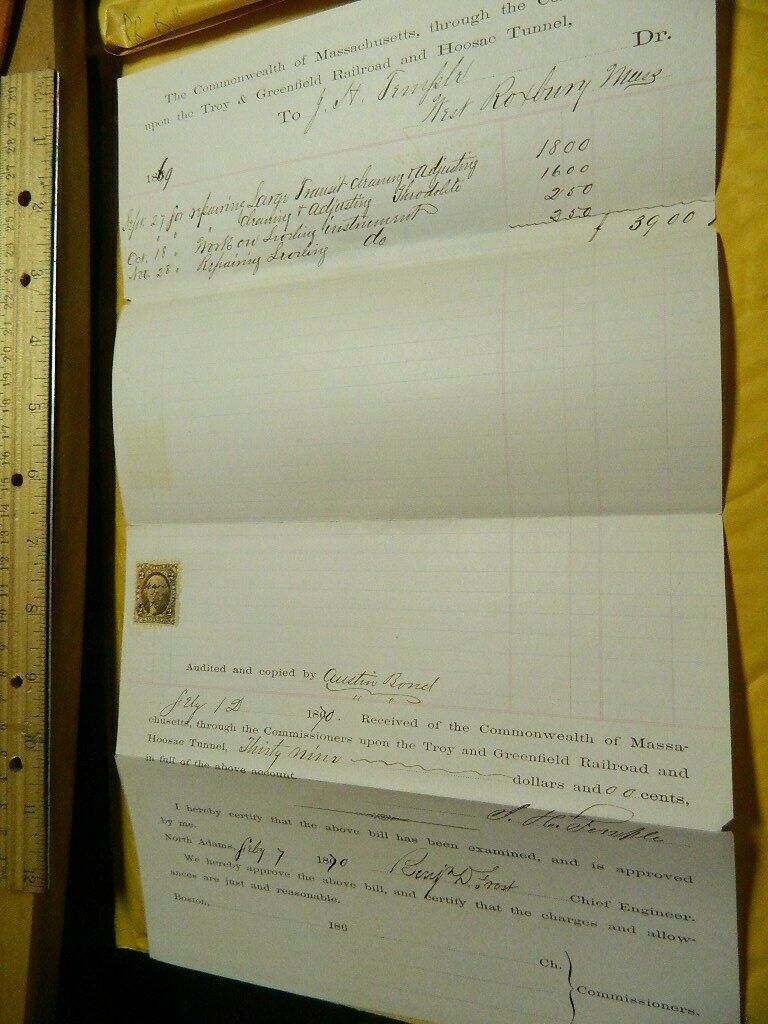 The Commonwealth of Massachusetts, through the
upon the Troy & Greenfield Railroad and Hoosac Tunnel,
To J. H. Temple Dr.
West Roxbury Mass
1869
Sept. 27 for repairing Large Transit Cleaning & Adjusting 1800
" " " Cleaning & Adjusting Theodolite 1600
Oct. 18 " Work on instrument 250
Nov. 28 " Repairing do 250 $ 3900
Audited and copied by Austin Bond
1870. Received of the Commonwealth of Massa-
chusetts, through the Commissioners upon the Troy and Greenfield Railroad and
Hoosac Tunnel, Thirty nine dollars and 00 cents,
in full of the above account.
J. H. Temple
I hereby certify that the above bill has been examined, and is approved
by me.
North Adams, Feby 7 1870 Benj. D. Frost Chief Engineer.
We hereby approve the above bill, and certify that the charges and allow-
ances are just and reasonable.
Boston, 186
Ch.
Commissioners.